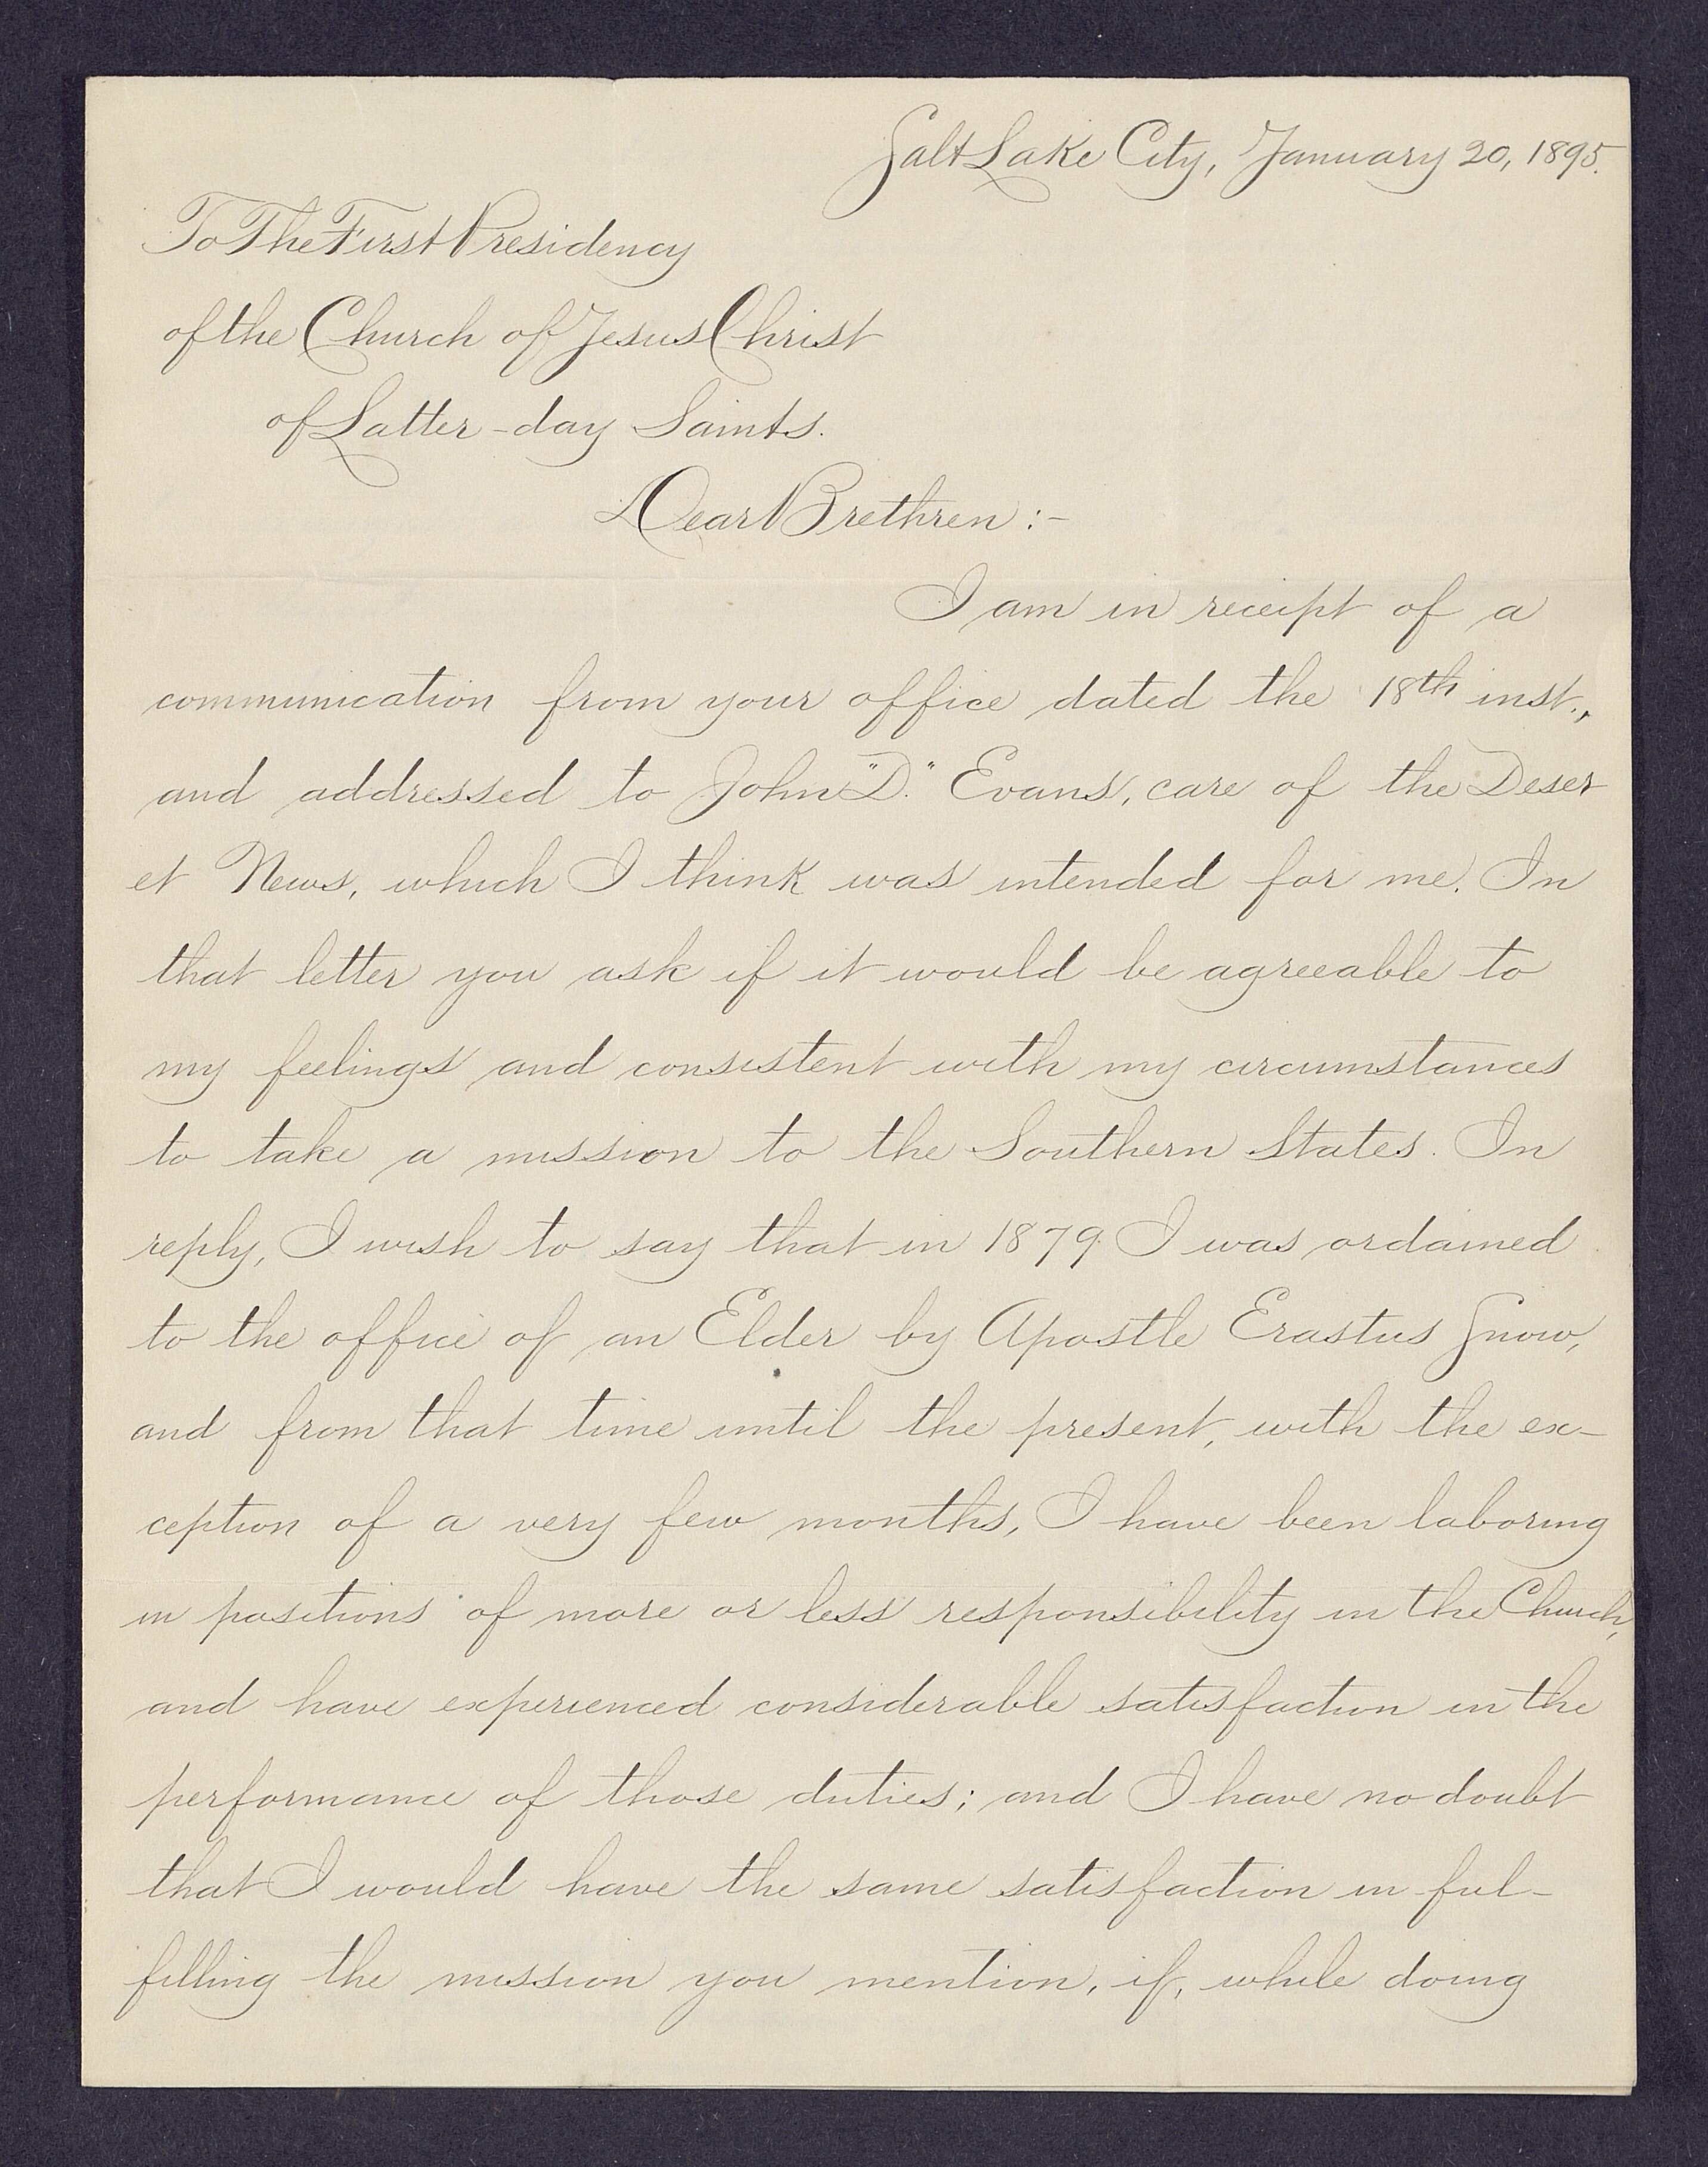 Salt Lake City, January 20, 1895.
To The First Presidency
of the Church of Jesus Christ
of Latter-day Saints.
Dear Brethren:-
I am in receipt of a
communication from your office dated the 18th inst.,
and addressed to John "D." Evans, care of the Deser
et News, which I think was intended for me. In
that letter you ask if it would be agreeable to
my feelings and consistent with my circumstances
to take a mission to the Southern States. In
reply, I wish to say that in 1879 I was ordained
to the office of an Elder by Apostle Erastus Snow,
and from that time until the present, with the ex-
ception of a very few months, I have been laboring
in positions of more or less responsibility in the Church,
and have experienced considerable satisfaction in the
performance of those duties; and I have no doubt
that I would have the same satisfaction in ful-
filling the mission you mention, if, while doing